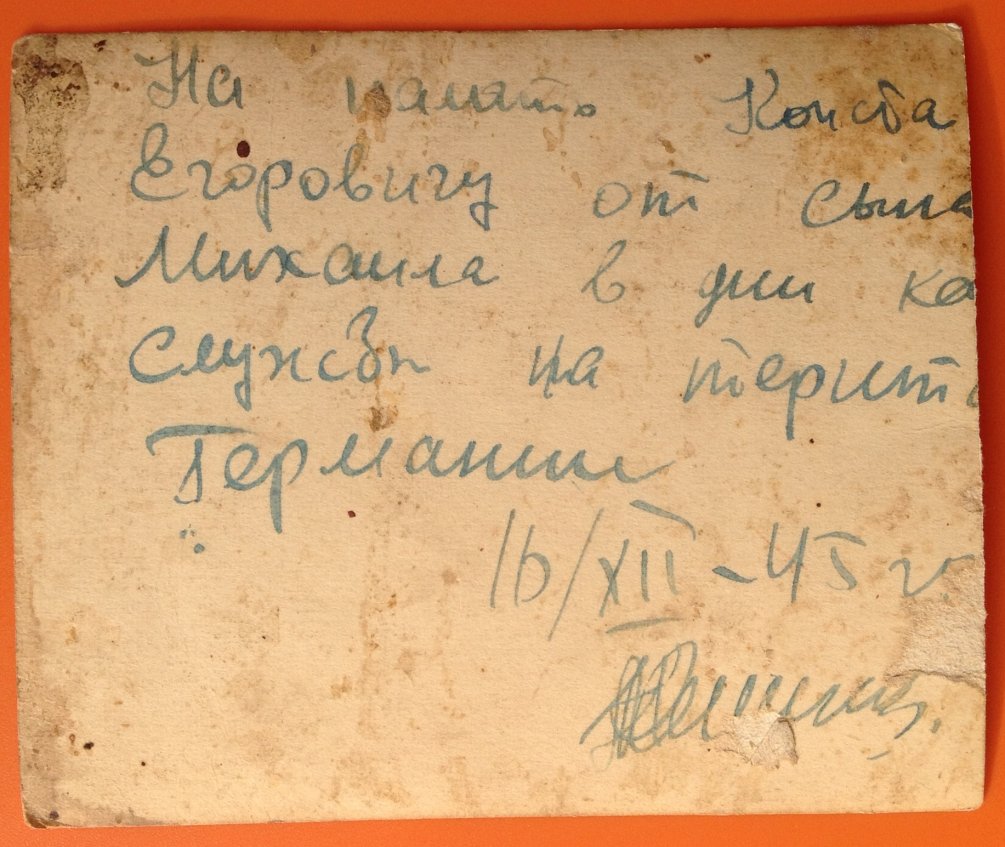 На память Конста
Егоровичу от сына
Михаила в дни
службы на терито
Германии
16/XII-45 г.